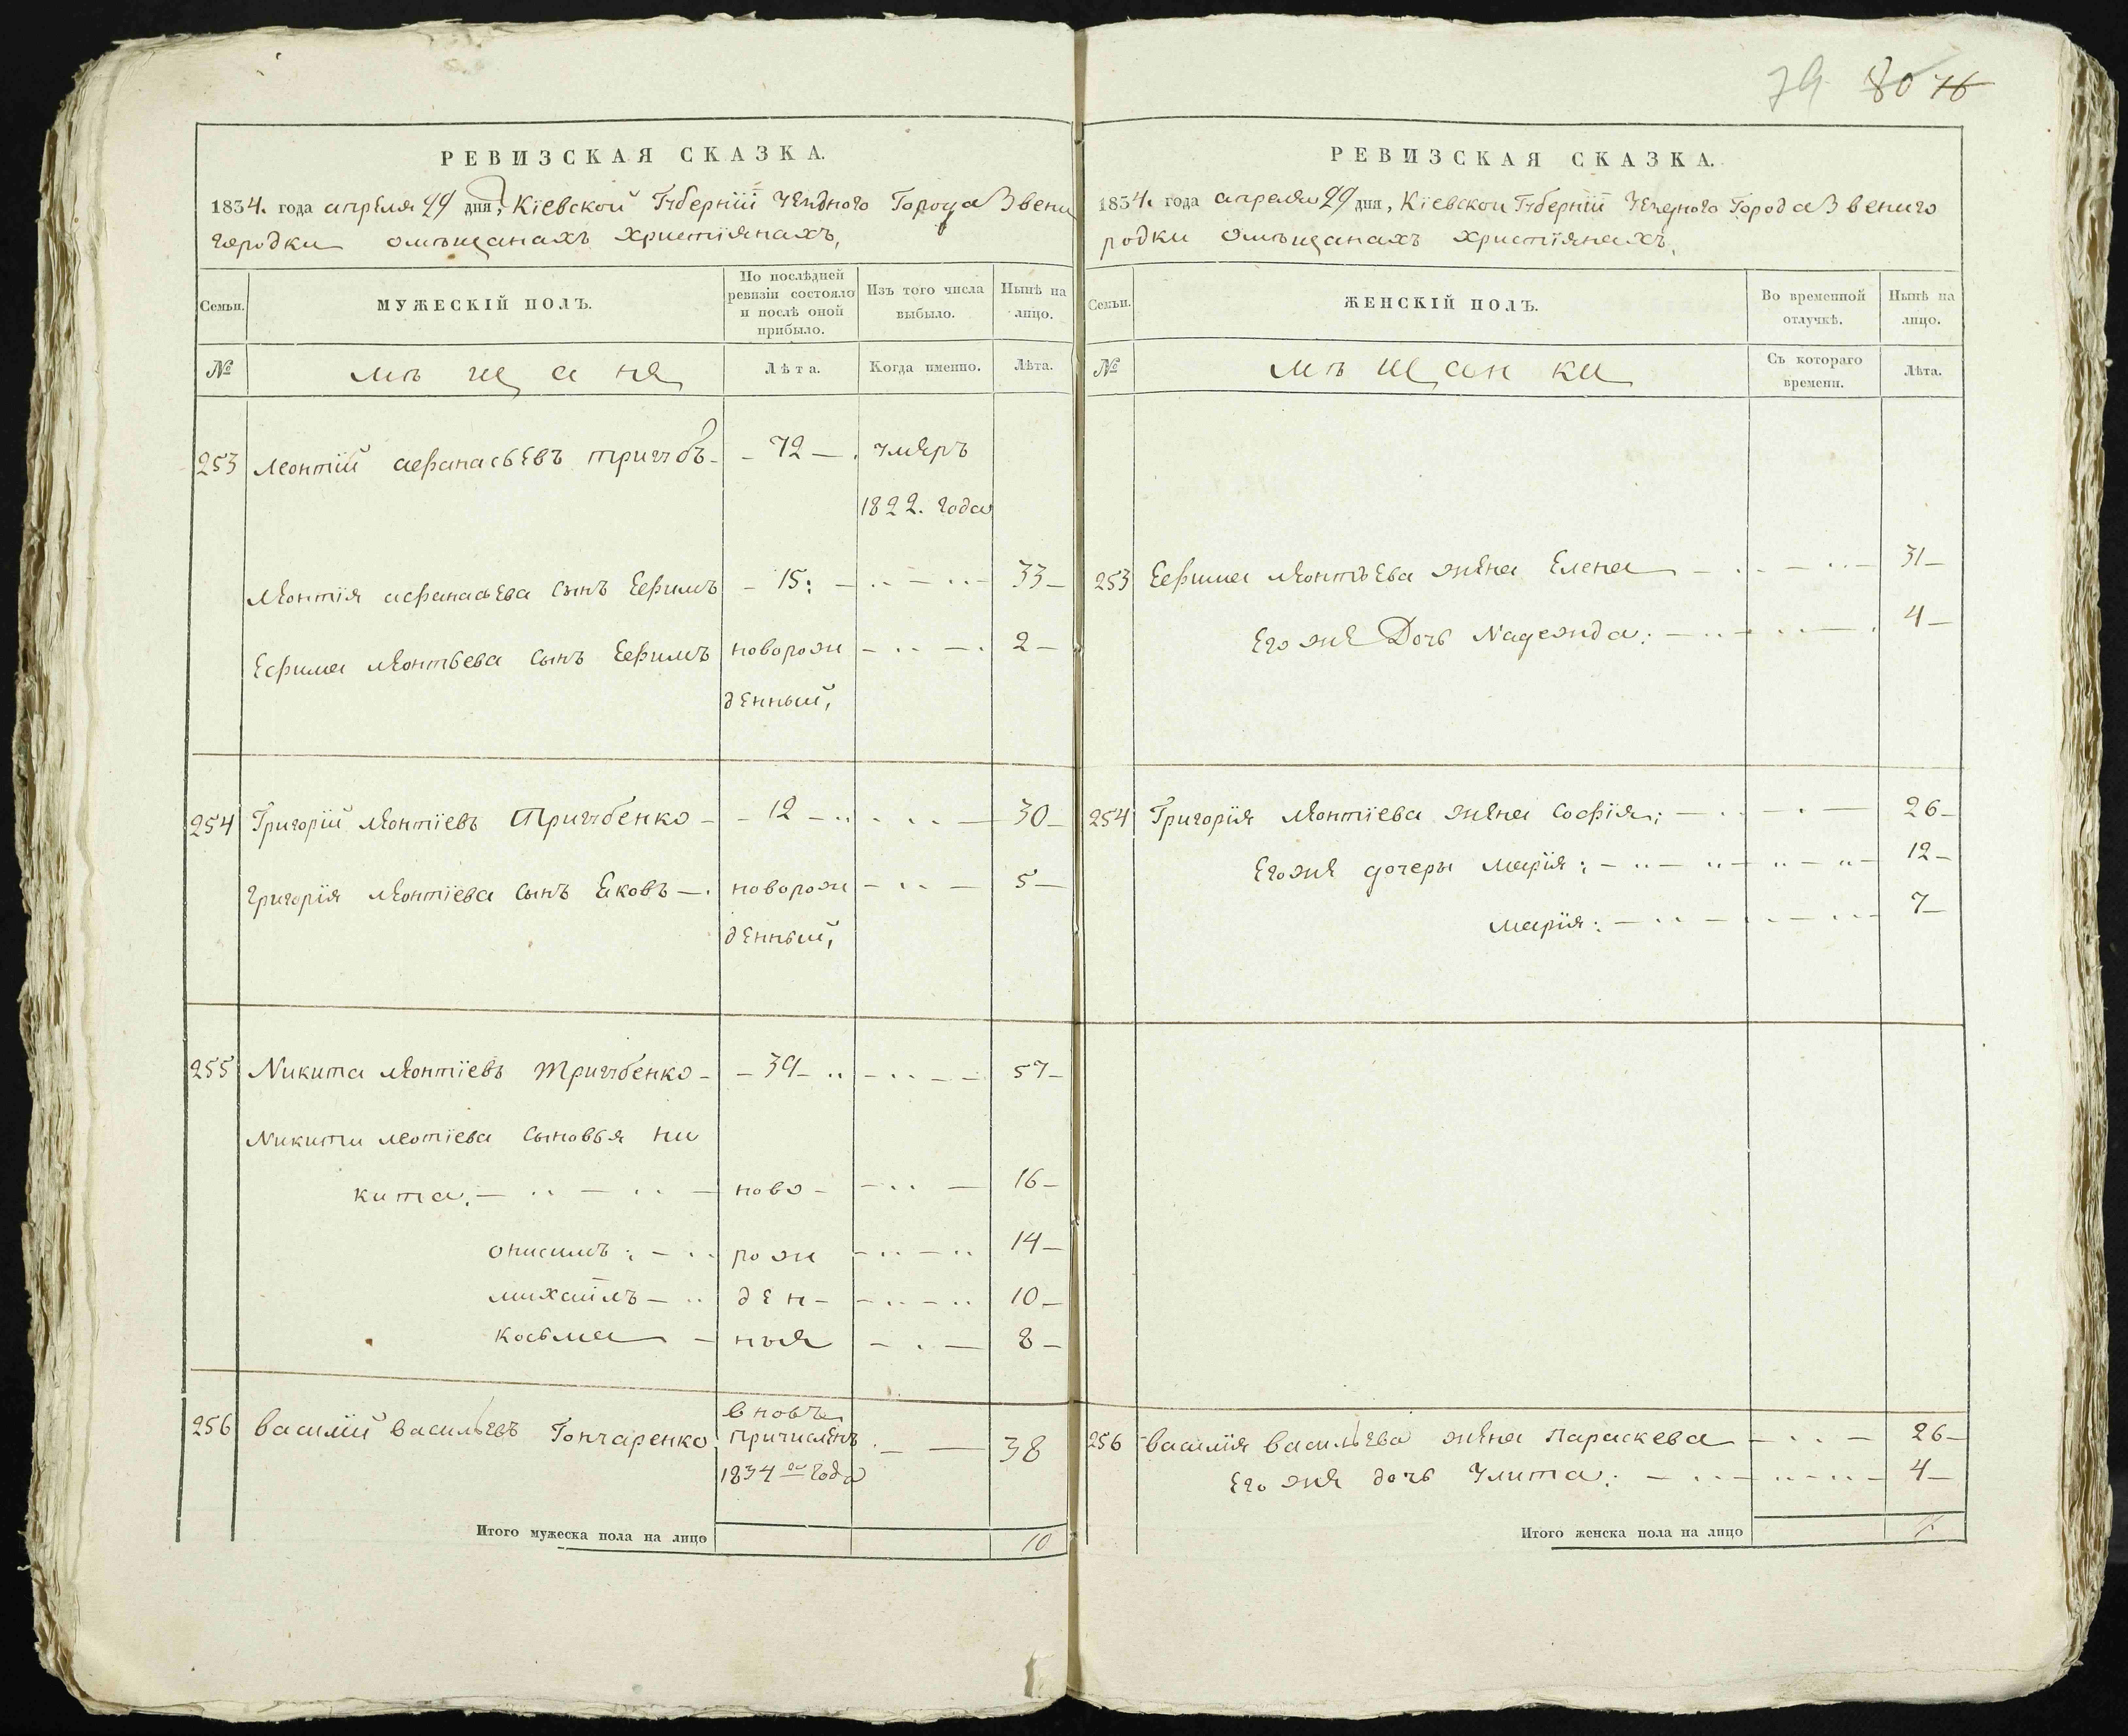 79 80 76
РЕВИЗСКАЯ СКАЗКА.
1834. года апреля 29 дня, Кіевской Губерніи Уездного Города Звени
городки омѣщанахъ христіянахъ,
Семьи.
МУЖЕСКІЙ ПОЛЪ.
По послѣдней ревизіи состояло и послѣ оной прибыло.
Изъ того числа выбыло.
Нынѣ на лицо.
№
мѣщаня
Лѣта.
Когда именно.
Лѣта.
253 Леонтій афанасьевъ тригубъ - 72 - умеръ
1822. года
Леонтія афанасьева сынъ Ефимъ - 15: - 33 -
Ефима Леонтьева сынъ Ефимъ новорож - 2 -
денный,
254 Григорій Леонтіевъ Тригубенко - 12 - 30 -
Григорія Леонтіева сынъ Яковъ - новорож - 5 -
денный,
255 Никита Леонтіевъ Тригубенко - 39 - 57 -
Никити Леотіева сыновья ни
кита. - ново - 16 -
онисимъ: - рож - 14 -
михаилъ - ден - 10 -
косьма - ныя - 8 -
256 Василій Васильевъ Гончаренко вновь
причисленъ - 38
1834 го года
Итого мужеска пола на лицо 10
РЕВИЗСКАЯ СКАЗКА.
1834. года апреля 29 дня, Кіевской Губерніи Уезного Города Звениго
родки омѣщанахъ христіянахъ,
Семьи.
ЖЕНСКІЙ ПОЛЪ.
Во временной отлучкѣ.
Нынѣ на лицо.
№
мѣщанки
Съ котораго времени.
Лѣта.
253 Ефима Леонтьева жена Елена - 31 -
Его же Дочь Надежда: - 4 -
254 Григорія Леонтіева жена Софія; - 26 -
Егоже дочеры Марія: - 12 -
Марія: - 7 -
256 Василія Васильева жена Параскева - 26 -
Его же дочь Улита: - 4 -
Итого женска пола на лицо 7